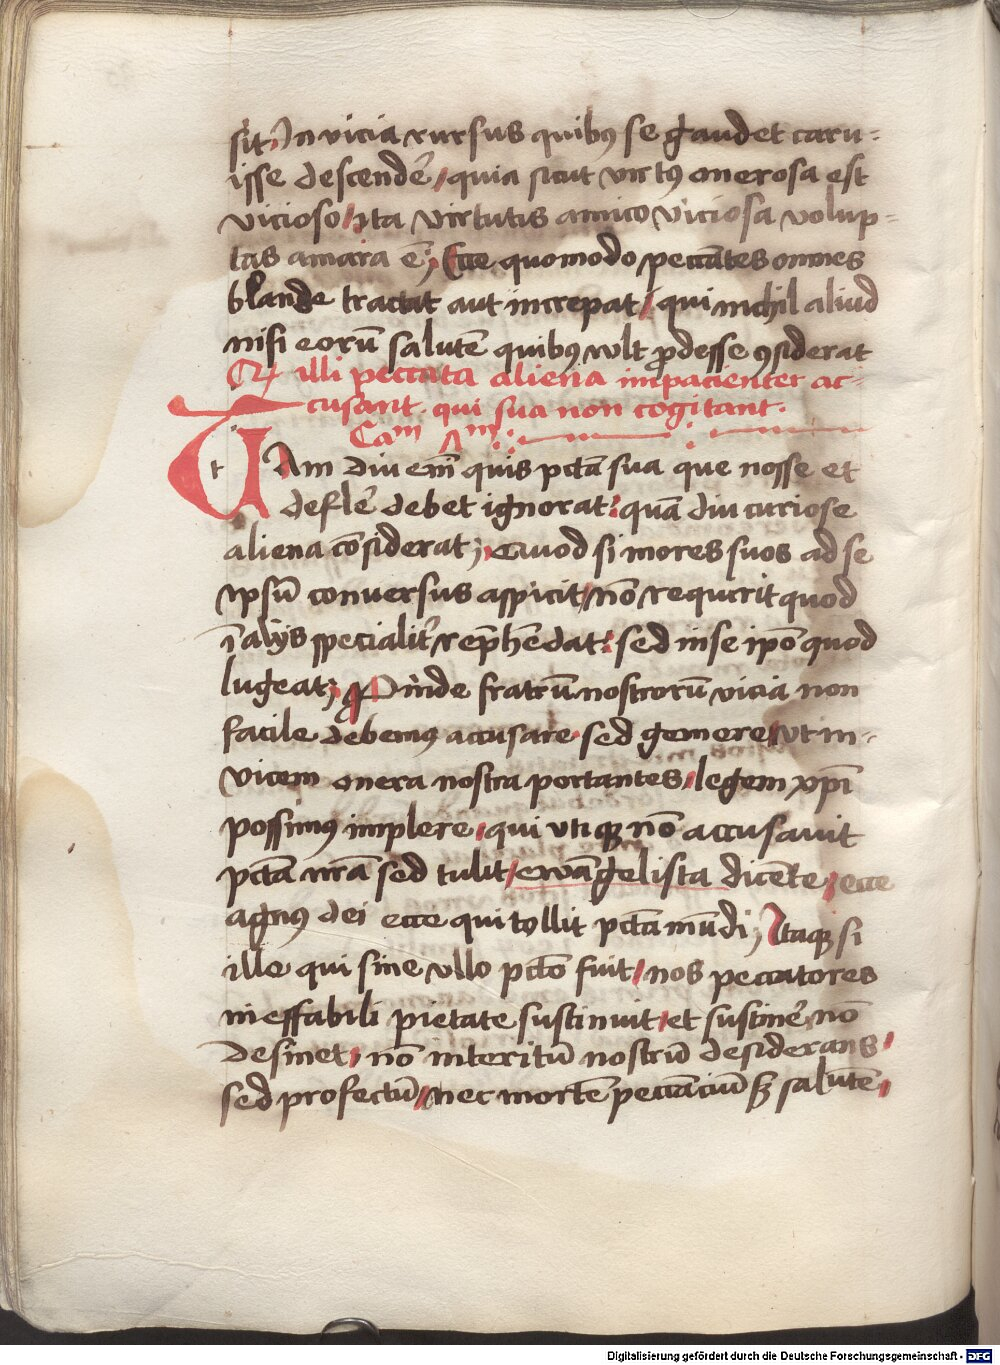 sit, In vicia rursus quibꝯ se gaudet caru-
isse descendē, quia sicut virtꝯ onerosa est
vicioso, ita virtutis amico viciosa volup-
tas amara ē; Ecce quomodo peccātes omnes
blande tractat aut increpat, qui nichil aliud
nisi eorū salutē quibꝯ wlt ꝓdesse ꝯsiderat
illi peccata aliena impacienter ac-
cusant. qui sua non cogitant.
Cam Am
t
Am diu em̄ quis pctā sua que nosse et
deflēr debet ignorat: quā diu curiose
aliena cōsiderat; Quod si mores suos ad se
ipsū conuersus aspicit, nō requirit quod
ī alijs specialit̄ rep̄hēdat: sed in se ip̄o quod
lugeat; Proinde fratrū nostrorū vicia non
facile debemꝯ accusare sed gemere, vt in-
vicem onera nostra portantes, legem xp̄i
possimꝯ implere, qui vtiqꝫ nō accusauit
pctā nr̄a sed tulit, ewāgelista dicēte, ecce
agnꝯ dei ecce qui tollit pctā mūdi; Itaqꝫ si
ille qui sine vllo pctō fuit, nos peccatores
ineffabili pietate sustinuit, et sustinēr nō
desinet, nō interitū nostrū desiderans,
sed profectū, nec mortē peccāciū sꝫ salutē,
Digitalisierung gefördert durch die Deutsche Forschungsgemeinschaft - DFG